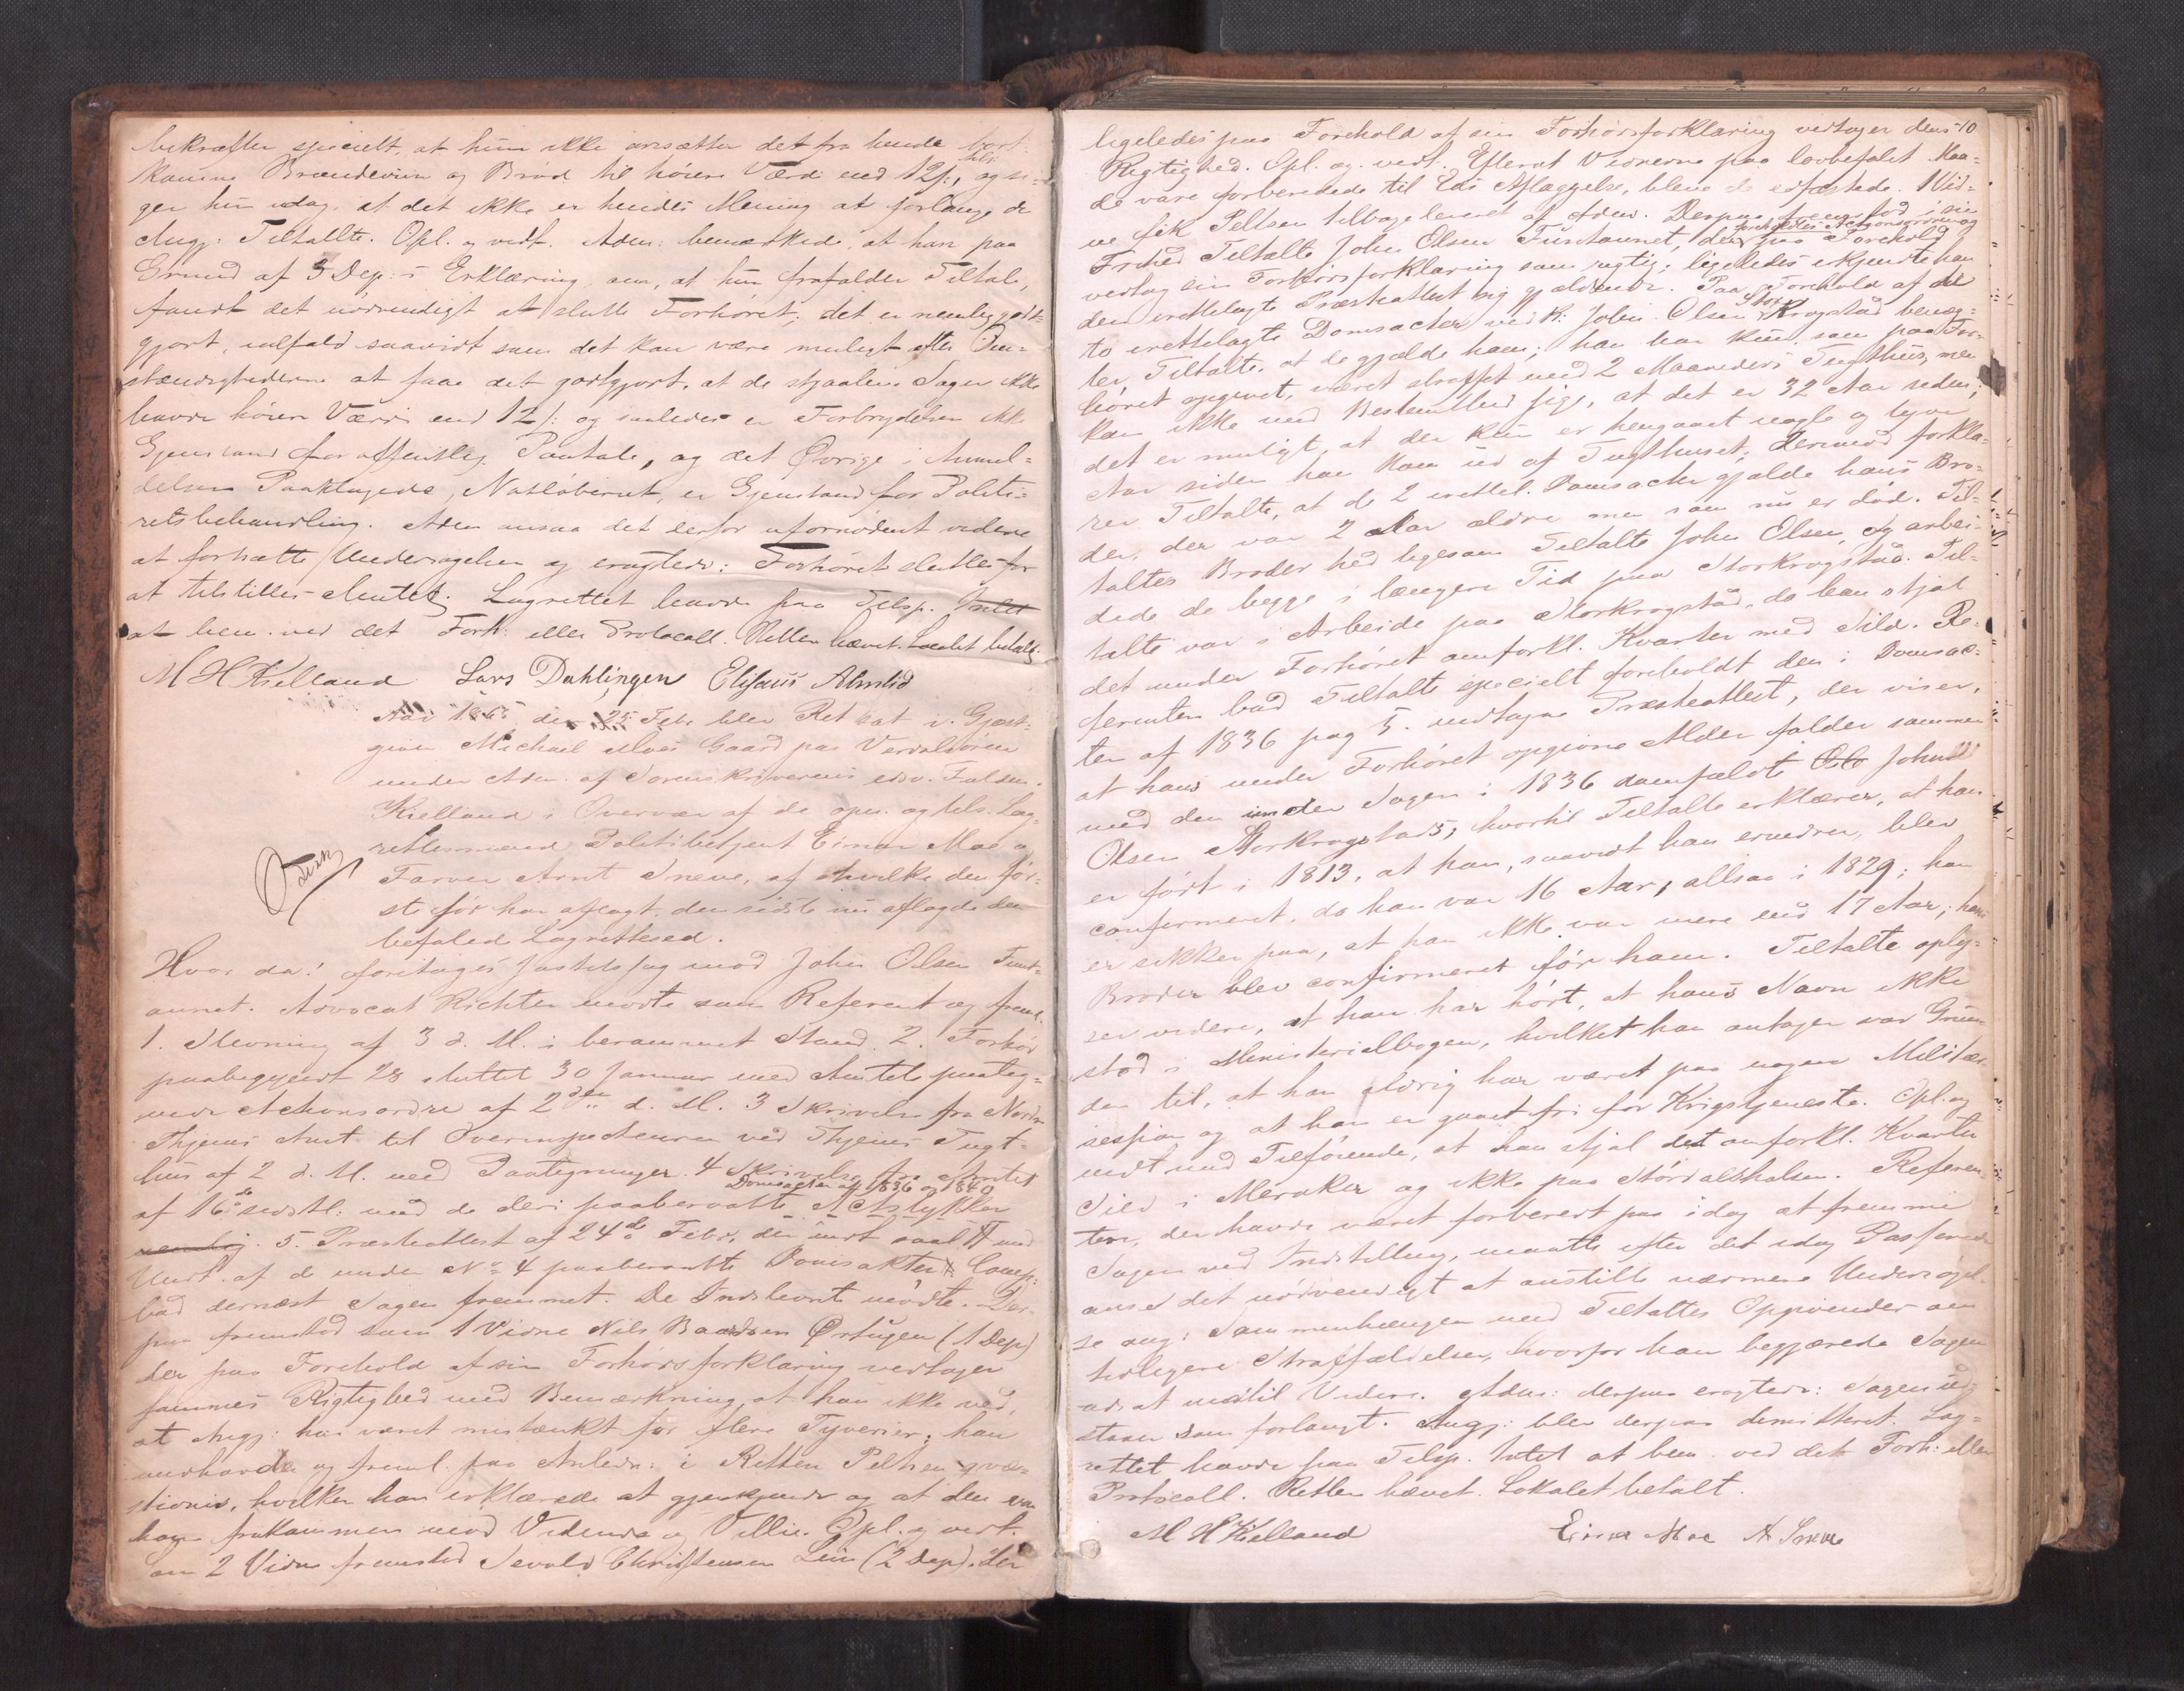 bekræfter specielt, at hun ikke ansætter det fra hende bort-
komne Brændeviin og Brød til høiere Værdi end 12 ß, og si-
ger hun idag, at det ikke er hendes Mening at forlange de
Angj: Tiltalte. Opl. og vedt. Adm: bemærkede, at han paa
Grund af 3 Dep: s Erklæring, om, at hun frafalder Tiltale,
fandt det nødvendigt at slutte Forhøret; det er nemlig godt-
gjort, ialfald saavidt som det kan være muligt efter Om-
stændighederne at faae det godtgjort, at de stjaalne Sager ikke
havde høiere Værdi end 12 ß: og saaledes er Forbrydelsen ikke
Gjenstand for offentlig Paatale, og det Øvrige i Anmel-
delsen Paaklagede, Natløberiet, er Gjenstand for Politi-
retsbehandling. Adm ansaa det derfor ufornødent videre
at fortsætte Undersøgelsen og eragtede: Forhøret sluttes for
at tilstilles Amtet. Lagrettet havde paa Tilsp. Intet
at bem. ved det Forh: eller Protocoll. Retten hævet. Localet betalt.
M H Kielland Lars Dahlingen Elisæus Almlid
Aar 1865 den 25 Febr blev Ret sat i Gjæst-
giver Michael Moes Gaard paa Verdalsøren
under Adm. af Sorenskriverens edsv. Fuldm.
Kielland i Overvær af de opn. og tils. Lag-
rettesmænd Politibetjent Einar Moe og
Farver Arnt Sneve, af hvilke den før-
ste før har aflagt, den sidste nu aflagde den
befalede Lagrettesed.
Hvor da! foretages Justitssag mod John Olsen Funt-
aunet. Advocat Richter mødte som Referent og freml.
1. Stevning af 3 d. M. i berammet Stand. 2. Forhør
paabegyndt 28 sluttet 30 Januar med Amtets paateg-
nede Actionsordre af 2den d. M. 3 Skrivelse fra Nordre
Thjems Amt til Overinspecteuren ved Thjems Tugt-
huus af 2 d. M. med Paategninger. 4 Skrivelse fra Amtet
Domsacter af 1836 og 1840
af 16de sidstl: med de deri paaberaabte Actstykker
nemlig. 5. Præsteattest af 24de Febr.
Comp:
bad dernæst Sagen fremmet. De Indstevnte mødte. Der-
paa fremstod som 1 Vidne Nils Baardsen Ørtugen (1 Dep)
der paa Forehold af sin Forhørsforklaring vedtager
sammes Rigtighed med Bemærkning, at han ikke ved,
at Angj: har været mistænkt for flere Tyverier; han
medhavde og freml. paa Anledn: i Retten Peltsen qvæ-
stionis, hvilken han erklærede at gjenkjende og at den var
ham frakommen mod Vidende og Villie. Opl. og vedt.
Som 2 Vidne fremstod Sevald Christensen Lein (2 Dep). der
10
ligeledes paa Forehold af sin Forhørsforklaring vedtager dens
Rigtighed. Opl. og vedt. Efterat Vidnerne paa lovbefalet Maa-
de vare forberedede til Eds Aflæggelse, bleve de edfæstede. 1 Vid-
ne fik Peltsen tilbageleveret af Adm. Derpaa fremstod i sin
foreholdtes Actionsordren og
Frihed Tiltalte John Olsen Funtaunet, der paa Forehold
vedtog sin Forhørsforklaring som rigtig; ligeledes erkjendte han
den irettelagte Præsteattest sig gjældende. Paa Forehold af de
to irettelagte Domsacter ved K: John Olsen Storkrogstad benæg-
ter Tiltalte, at de gjælde ham; han har kun, som paa For-
høret opgivet, været straffet med 2 Maaneders Tugthuus, men
kan ikke med Bestemthed sige, at det er 32 Aar siden;
det er muligt, at der kun er hengaaet nogle og tyve
Aar siden han kom ud af Tugthuset; derimod forkla-
rer Tiltalte, at de 2 irettel. Domsacter gjælde hans Bro-
der, der var 2 Aar ældre men som nu er død. Til-
taltes Broder hed ligesom Tiltalte John Olsen, og arbei-
dede de begge i længere Tid paa Storkrogstad. Til-
talte var i Arbeide paa Storkrogstad, da han stjal
det under Forhøret omforkl. Kvarter med Sild. Re-
ferenten bad Tiltalte specielt foreholdt den i Domsac-
ten af 1836 pag 5. indtagne Præsteattest, der viser,
at hans under Forhøret opgivne Alder falder sammen
med den under Sagen i 1836 domfældte Ole John
Olsen Storkrogstads, hvortil Tiltalte erklærer, at han
er født i 1813, at han, saavidt han erindrer, blev
confirmeret, da han var 16 Aar, altsaa i 1829; han
er sikker paa, at han ikke var mere end 17 Aar; hans
Broder blev confirmeret før ham. Tiltalte oply-
ser videre, at han har hørt, at hans Navn ikke
stod i Ministerialbogen, hvilket han antager var Grun-
den til, at han aldrig har været paa nogen Militær-
session og at han er gaaet fri for Krigstjeneste. Opl. og
vedt med Tilføiende, at han stjal det omforkl. Kvarter
Sild i Meraker og ikke paa Størdalshalsen. Referen-
ten, der havde været forberedt paa idag at fremme
Sagen ved Indstilling, maatte efter det idag Passerede
anse det nødvendigt at anstille nærmere Undersøgel-
se ang: Sammenhængen med Tiltaltes Opgivender om
tidligere Straffældelser, hvorfor han begjærede Sagen
udsat indtil Videre. Adm: derpaa eragtede: Sagen ud-
staaer som forlangt. Angj: blev derpaa demitteret. Lag-
rettet havde paa Tilsp. Intet at bem. ved det Forh: eller
Protocoll. Retten hævet. Lokalet betalt.
M H Kielland Einar Moe A Sneve